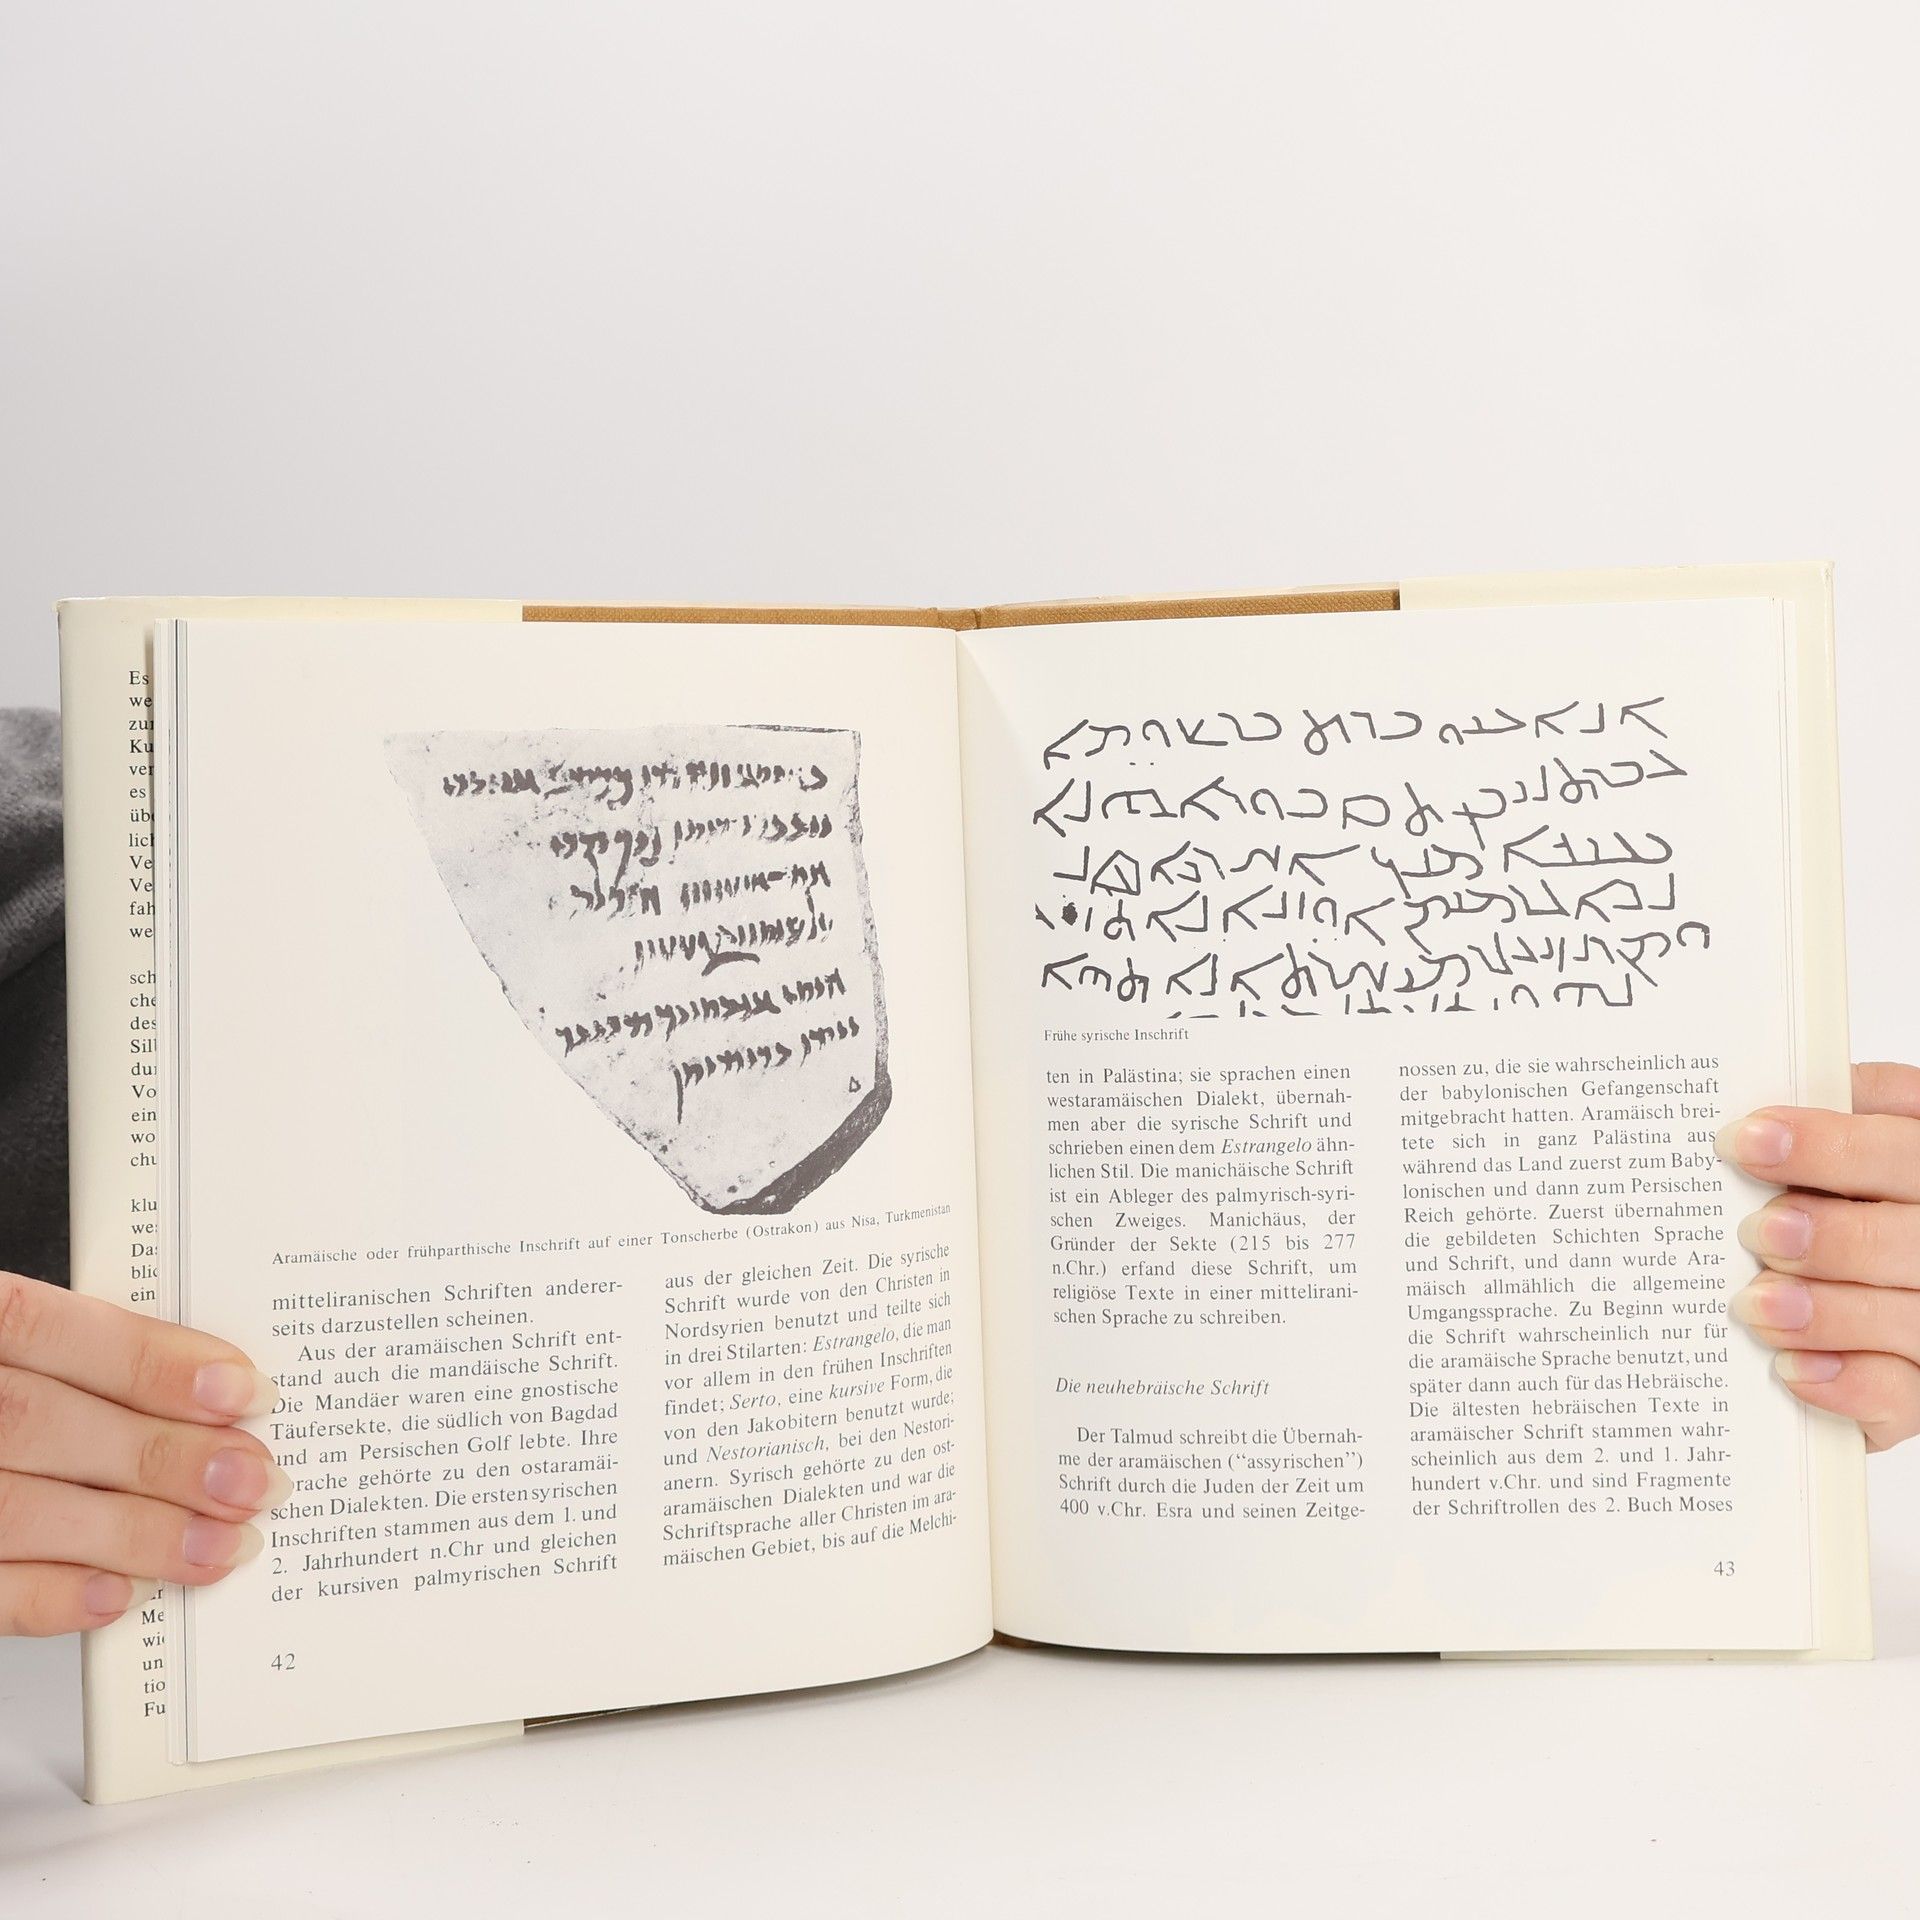 Es
we
zur
Ku
ver
es
übe
lich
Ve
Ve
fah
we
sch
che
des
Sil
du
Vo
ein
wo
chu
klu
we
Da
blic
ein
Me
wie
un
tio
Fu
Aramäische oder frühparthische Inschrift auf einer Tonscherbe (Ostrakon) aus Nisa, Turkmenistan
mitteliranischen Schriften anderer-
seits darzustellen scheinen.
Aus der aramäischen Schrift ent-
stand auch die mandäische Schrift.
Die Mandäer waren eine gnostische
Täufersekte, die südlich von Bagdad
und am Persischen Golf lebte. Ihre
Sprache gehörte zu den ostaramäi-
schen Dialekten. Die ersten syrischen
Inschriften stammen aus dem 1. und
2. Jahrhundert n.Chr und gleichen
der kursiven palmyrischen Schrift
aus der gleichen Zeit. Die syrische
Schrift wurde von den Christen in
Nordsyrien benutzt und teilte sich
in drei Stilarten: Estrangelo, die man
vor allem in den frühen Inschriften
findet; Serto, eine kursive Form, die
von den Jakobitern benutzt wurde;
und Nestorianisch, bei den Nestori-
anern. Syrisch gehörte zu den ost-
aramäischen Dialekten und war die
Schriftsprache aller Christen im ara-
mäischen Gebiet, bis auf die Melchi-
42
Frühe syrische Inschrift
ten in Palästina; sie sprachen einen
westaramäischen Dialekt, übernah-
men aber die syrische Schrift und
schrieben einen dem Estrangelo ähn-
lichen Stil. Die manichäische Schrift
ist ein Ableger des palmyrisch-syri-
schen Zweiges. Manichäus, der
Gründer der Sekte (215 bis 277
n.Chr.) erfand diese Schrift, um
religiöse Texte in einer mittelirani-
schen Sprache zu schreiben.
Die neuhebräische Schrift
Der Talmud schreibt die Übernah-
me der aramäischen (“assyrischen”)
Schrift durch die Juden der Zeit um
400 v.Chr. Esra und seinen Zeitge-
nossen zu, die sie wahrscheinlich aus
der babylonischen Gefangenschaft
mitgebracht hatten. Aramäisch brei-
tete sich in ganz Palästina aus,
während das Land zuerst zum Baby-
lonischen und dann zum Persischen
Reich gehörte. Zuerst übernahmen
die gebildeten Schichten Sprache
und Schrift, und dann wurde Ara-
mäisch allmählich die allgemeine
Umgangssprache. Zu Beginn wurde
die Schrift wahrscheinlich nur für
die aramäische Sprache benutzt, und
später dann auch für das Hebräische.
Die ältesten hebräischen Texte in
aramäischer Schrift stammen wahr-
scheinlich aus dem 2. und 1. Jahr-
hundert v.Chr. und sind Fragmente
der Schriftrollen des 2. Buch Moses
43